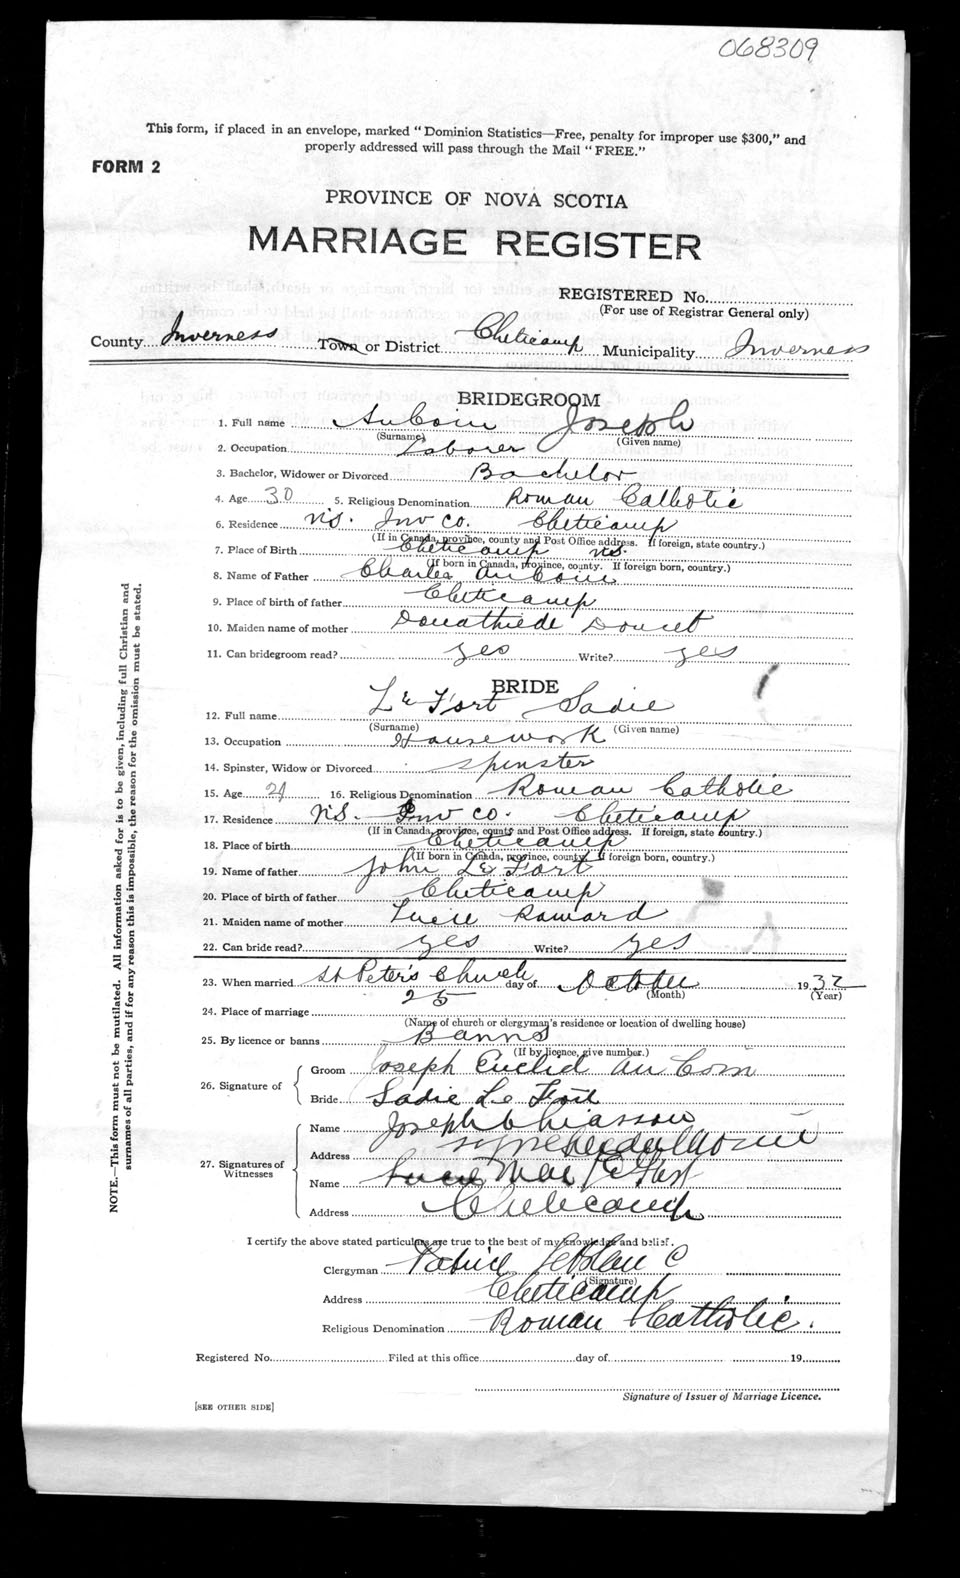 068309
This form, if placed in an envelope, marked "Dominion Statistics—Free, penalty for improper use $300," and
properly addressed will pass through the Mail "FREE."
FORM 2
PROVINCE OF NOVA SCOTIA
MARRIAGE REGISTER
REGISTERED No.
(For use of Registrar General only)
County Inverness Town or District Cheticamp Municipality Inverness
BRIDEGROOM
1. Full name AuCoin Joseph
(Surname) (Given name)
2. Occupation Laborer
3. Bachelor, Widower or Divorced Bachelor
4. Age 30 5. Religious Denomination Roman Catholic
6. Residence NS. Inv Co. Cheticamp
(If in Canada, province, county and Post Office address. If foreign, state country.)
7. Place of Birth Cheticamp NS.
(If born in Canada, province, county. If foreign born, country.)
8. Name of Father Charles AuCoin
9. Place of birth of father Cheticamp
10. Maiden name of mother Donathilde Doucet
11. Can bridegroom read? yes Write? yes
BRIDE
12. Full name LeFort Sadie
(Surname) (Given name)
13. Occupation Housework
14. Spinster, Widow or Divorced spinster
15. Age 21 16. Religious Denomination Roman Catholic
17. Residence NS. Inv Co. Cheticamp
(If in Canada, province, county and Post Office address. If foreign, state country.)
18. Place of birth Cheticamp
(If born in Canada, province, county. If foreign born, country.)
19. Name of father John LeFort
20. Place of birth of father Cheticamp
21. Maiden name of mother Lucie
22. Can bride read? yes Write? yes
23. When married St Peter's Church day of October 1932
25 (Month) (Year)
24. Place of marriage
(Name of church or clergyman's residence or location of dwelling house)
25. By licence or banns Banns
(If by licence, give number.)
26. Signature of Groom Joseph Euclid AuCoin
Bride Sadie Le Fort
27. Signatures of Witnesses Name Joseph Chiasson
Address
Name Lucie Mae LeFort
Address Cheticamp
I certify the above stated particulars are true to the best of my knowledge and belief.
Clergyman Patrice LeBlanc
(Signature)
Address Cheticamp
Religious Denomination Roman Catholic.
Registered No. Filed at this office day of 19
Signature of Issuer of Marriage Licence.
[SEE OTHER SIDE]
NOTE.—This form must not be mutilated. All information asked for is to be given, including full Christian and
surnames of all parties, and if for any reason this is impossible, the reason for the omission must be stated.